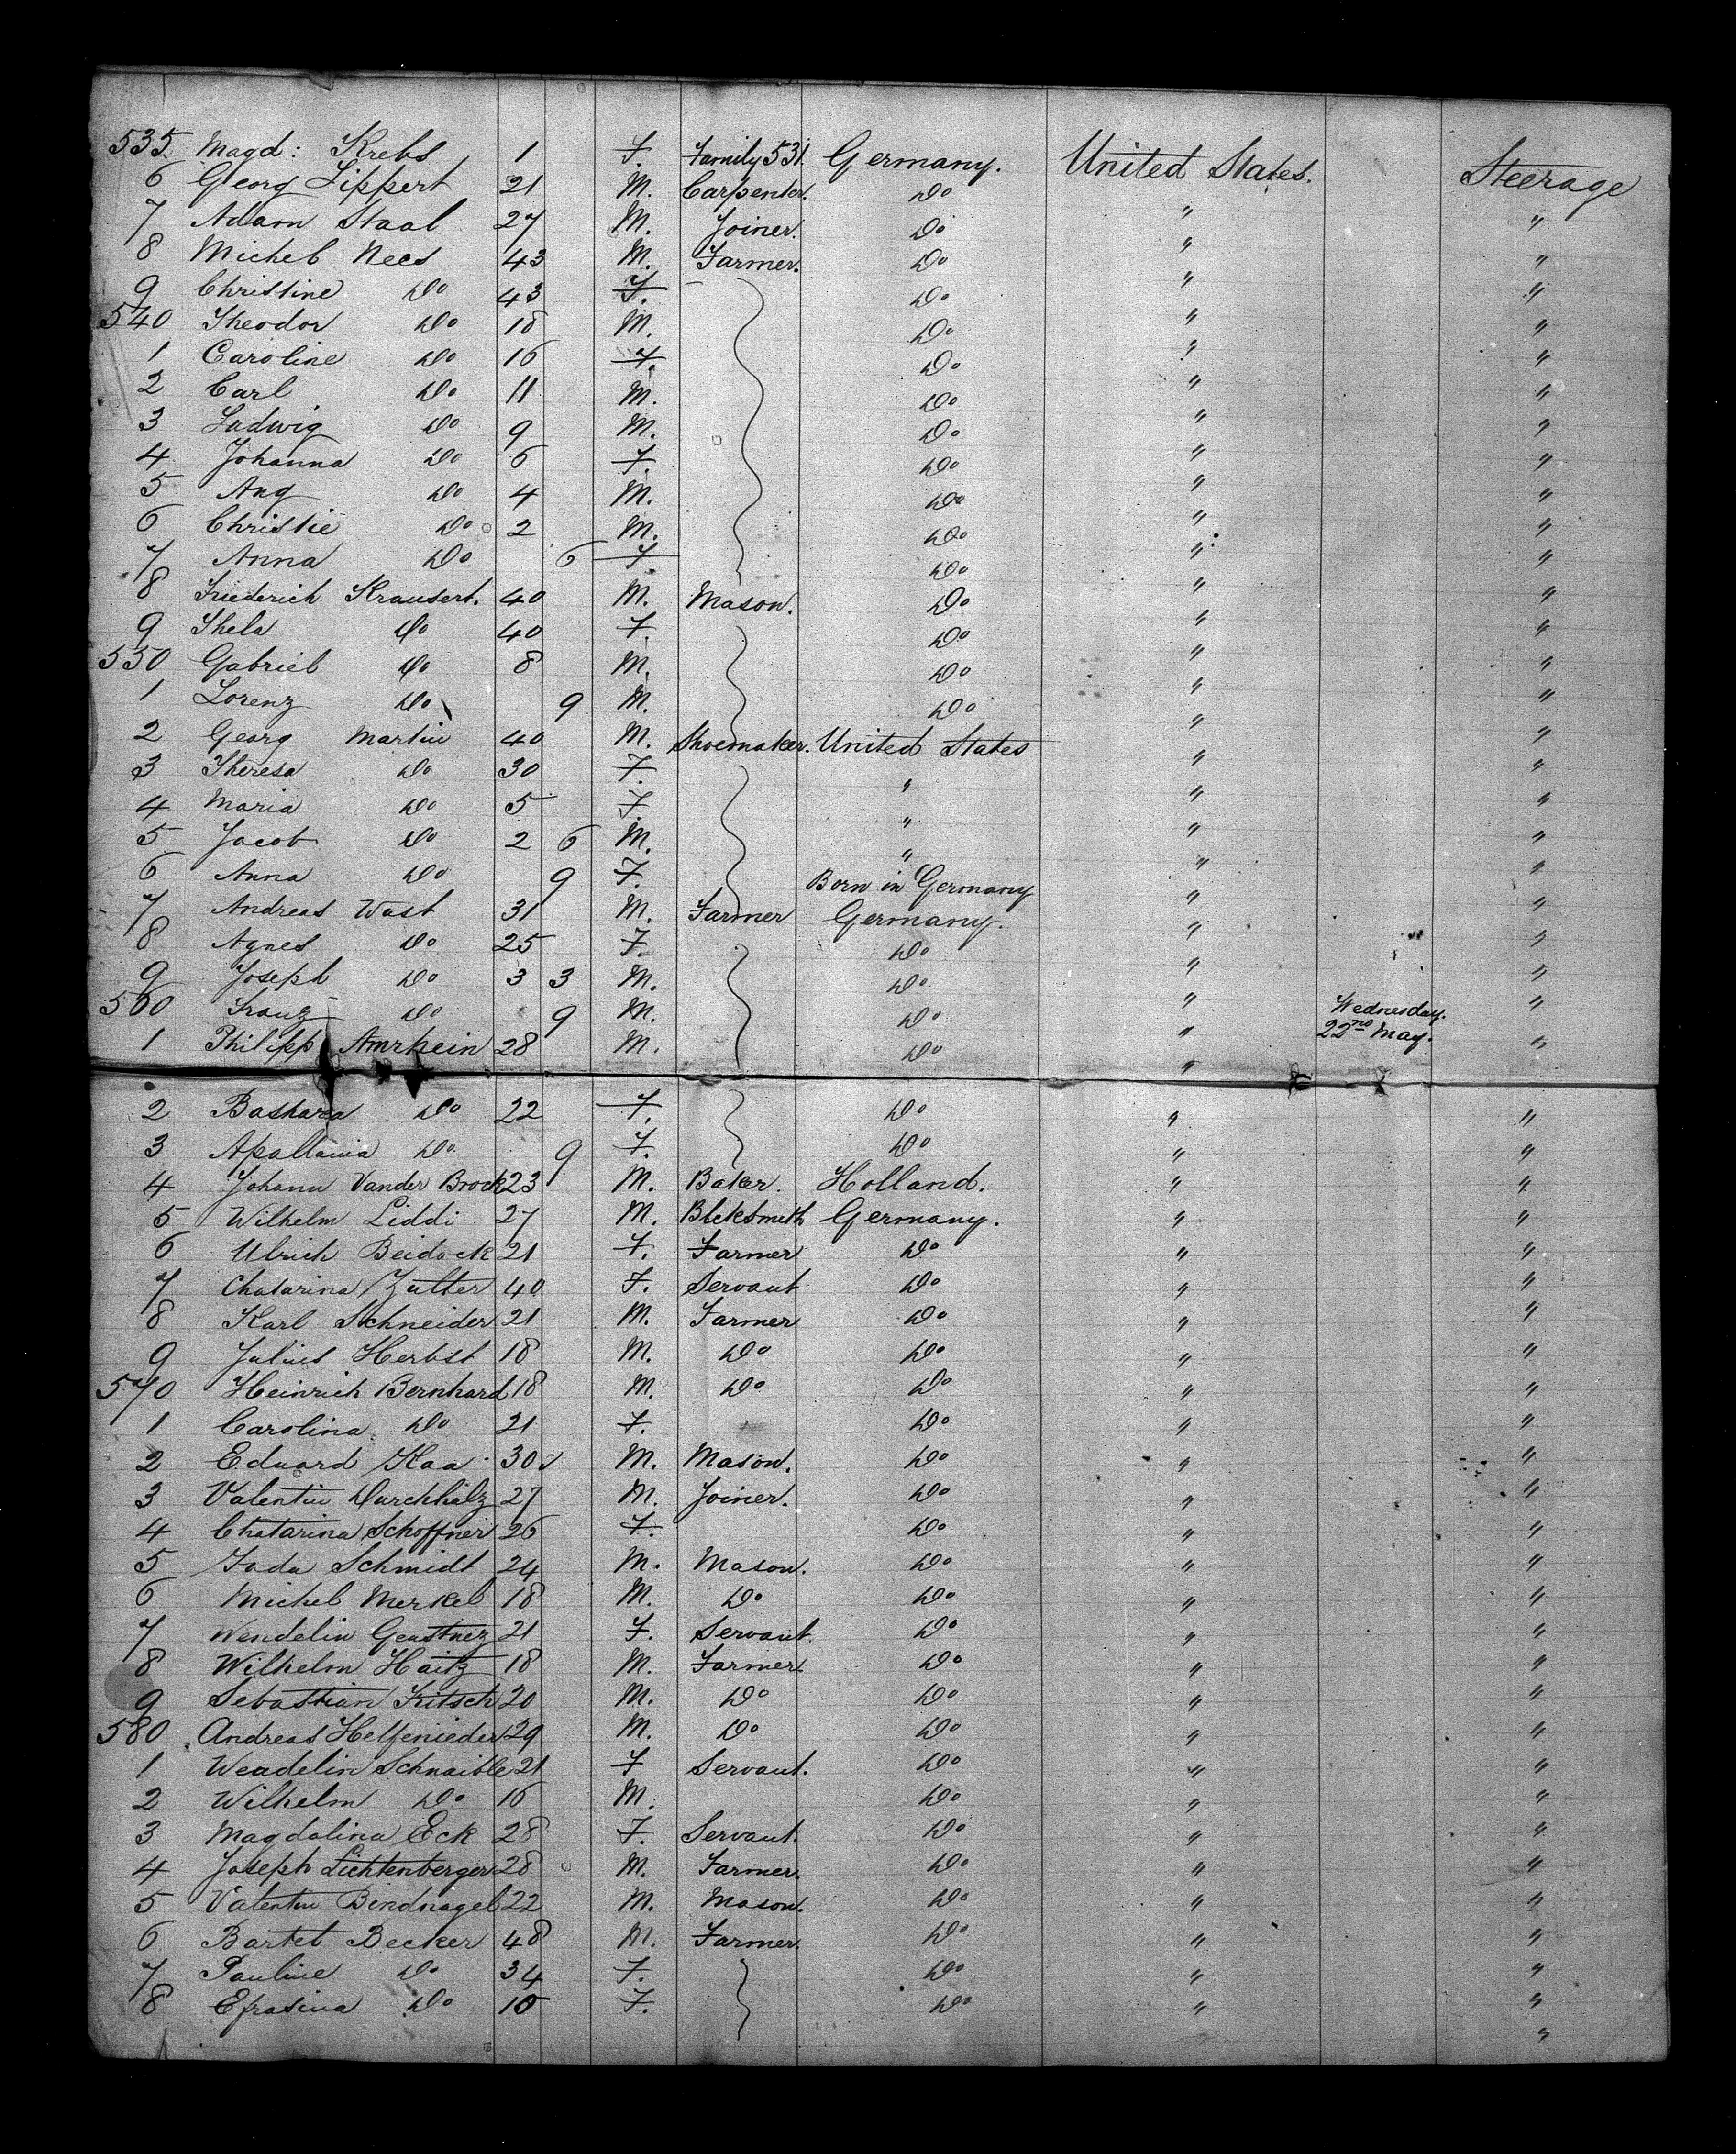 535. Magd: Krebs 1 F. Family 531. Germany. United States. Steerage
6 Georg Lippert 21 M. Carpenter. Do " "
7 Adam Staab 27 M. Joiner. Do " "
8 Michel Nees 43 M. Farmer. Do " "
9 Christine Do 43 F. Do " "
540 Theodor Do 18 M. Do " "
1 Caroline Do 16 F. Do " "
2 Carl Do 11 M. Do " "
3 Ludwig Do 9 M. Do " "
4 Johanna Do 6 F. Do " "
5 Aug Do 4 M. Do " "
6 Christie Do 2 M. Do " "
7 Anna Do 6 F. Do " "
8 Friederich Krausert. 40 M. Mason. Do " "
9 Thela Do 40 F. Do " "
550 Gabriel Do 8 M. Do " "
1 Lorenz Do 9 M. Do " "
2 Georg Martin 40 M. Shoemaker. United States " "
3 Theresa Do 30 F. " " "
4 Maria Do 5 F " " "
5 Jacob Do 2 6 M. " " "
6 Anna Do 9 F. Born in Germany " "
7 Andreas Wust 31 M. Farmer Germany. " "
8 Agnes Do 25 F. Do " "
9 Joseph Do 3 3 M. Do " "
560 Franz Do 9 M. Do " Wednesday. "
1 Philipp Amrhein 28 M. Do " 22nd May. "
2 Barbara Do 22 F. Do " "
3 Apallania Do 9 F. Do " "
4 Johann Vander Brock 23 M. Baker. Holland. " "
5 Wilhelm Liddi 27 M. Blcksmith Germany. " "
6 Ulrich Beidack 21 F. Farmer Do " "
7 Chatarina Zutter 40 F. Servant Do " "
8 Karl Schneider 21 M. Farmer Do " "
9 Julius Herbst 18 M. Do Do " "
570 Heinrich Bernhard 18 M. Do Do " "
1 Carolina Do 21 F. Do " "
2 Eduard Kaa 30 M. Mason. Do " "
3 Valentin Durchholz 27 M. Joiner. Do " "
4 Chatarina Schoffner 26 F. Do " "
5 Schmidt 24 M. Mason. Do " "
6 Michel Merkel 18 M. Do Do " "
7 Wendelin Gerstner 21 F. Servant. Do " "
8 Wilhelm Haitz 18 M. Farmer. Do " "
9 Sebastian Fritsch 20 M. Do Do " "
580 Andreas Helfenieder 29 M. Do Do " "
1 Weadelin Schnaible 21 F Servant. Do " "
2 Wilhelm Do 16 M. Do " "
3 Magdalina Eck 28 F. Servant. Do " "
4 Joseph Lichtenberger 28 M. Farmer. Do " "
5 Valentin Bindnagel 22 M. Mason. Do " "
6 Bartel Becker 48 M. Farmer. Do " "
7 Pauline Do 34 F. Do " "
8 Efrasina Do 10 F. Do " "
"